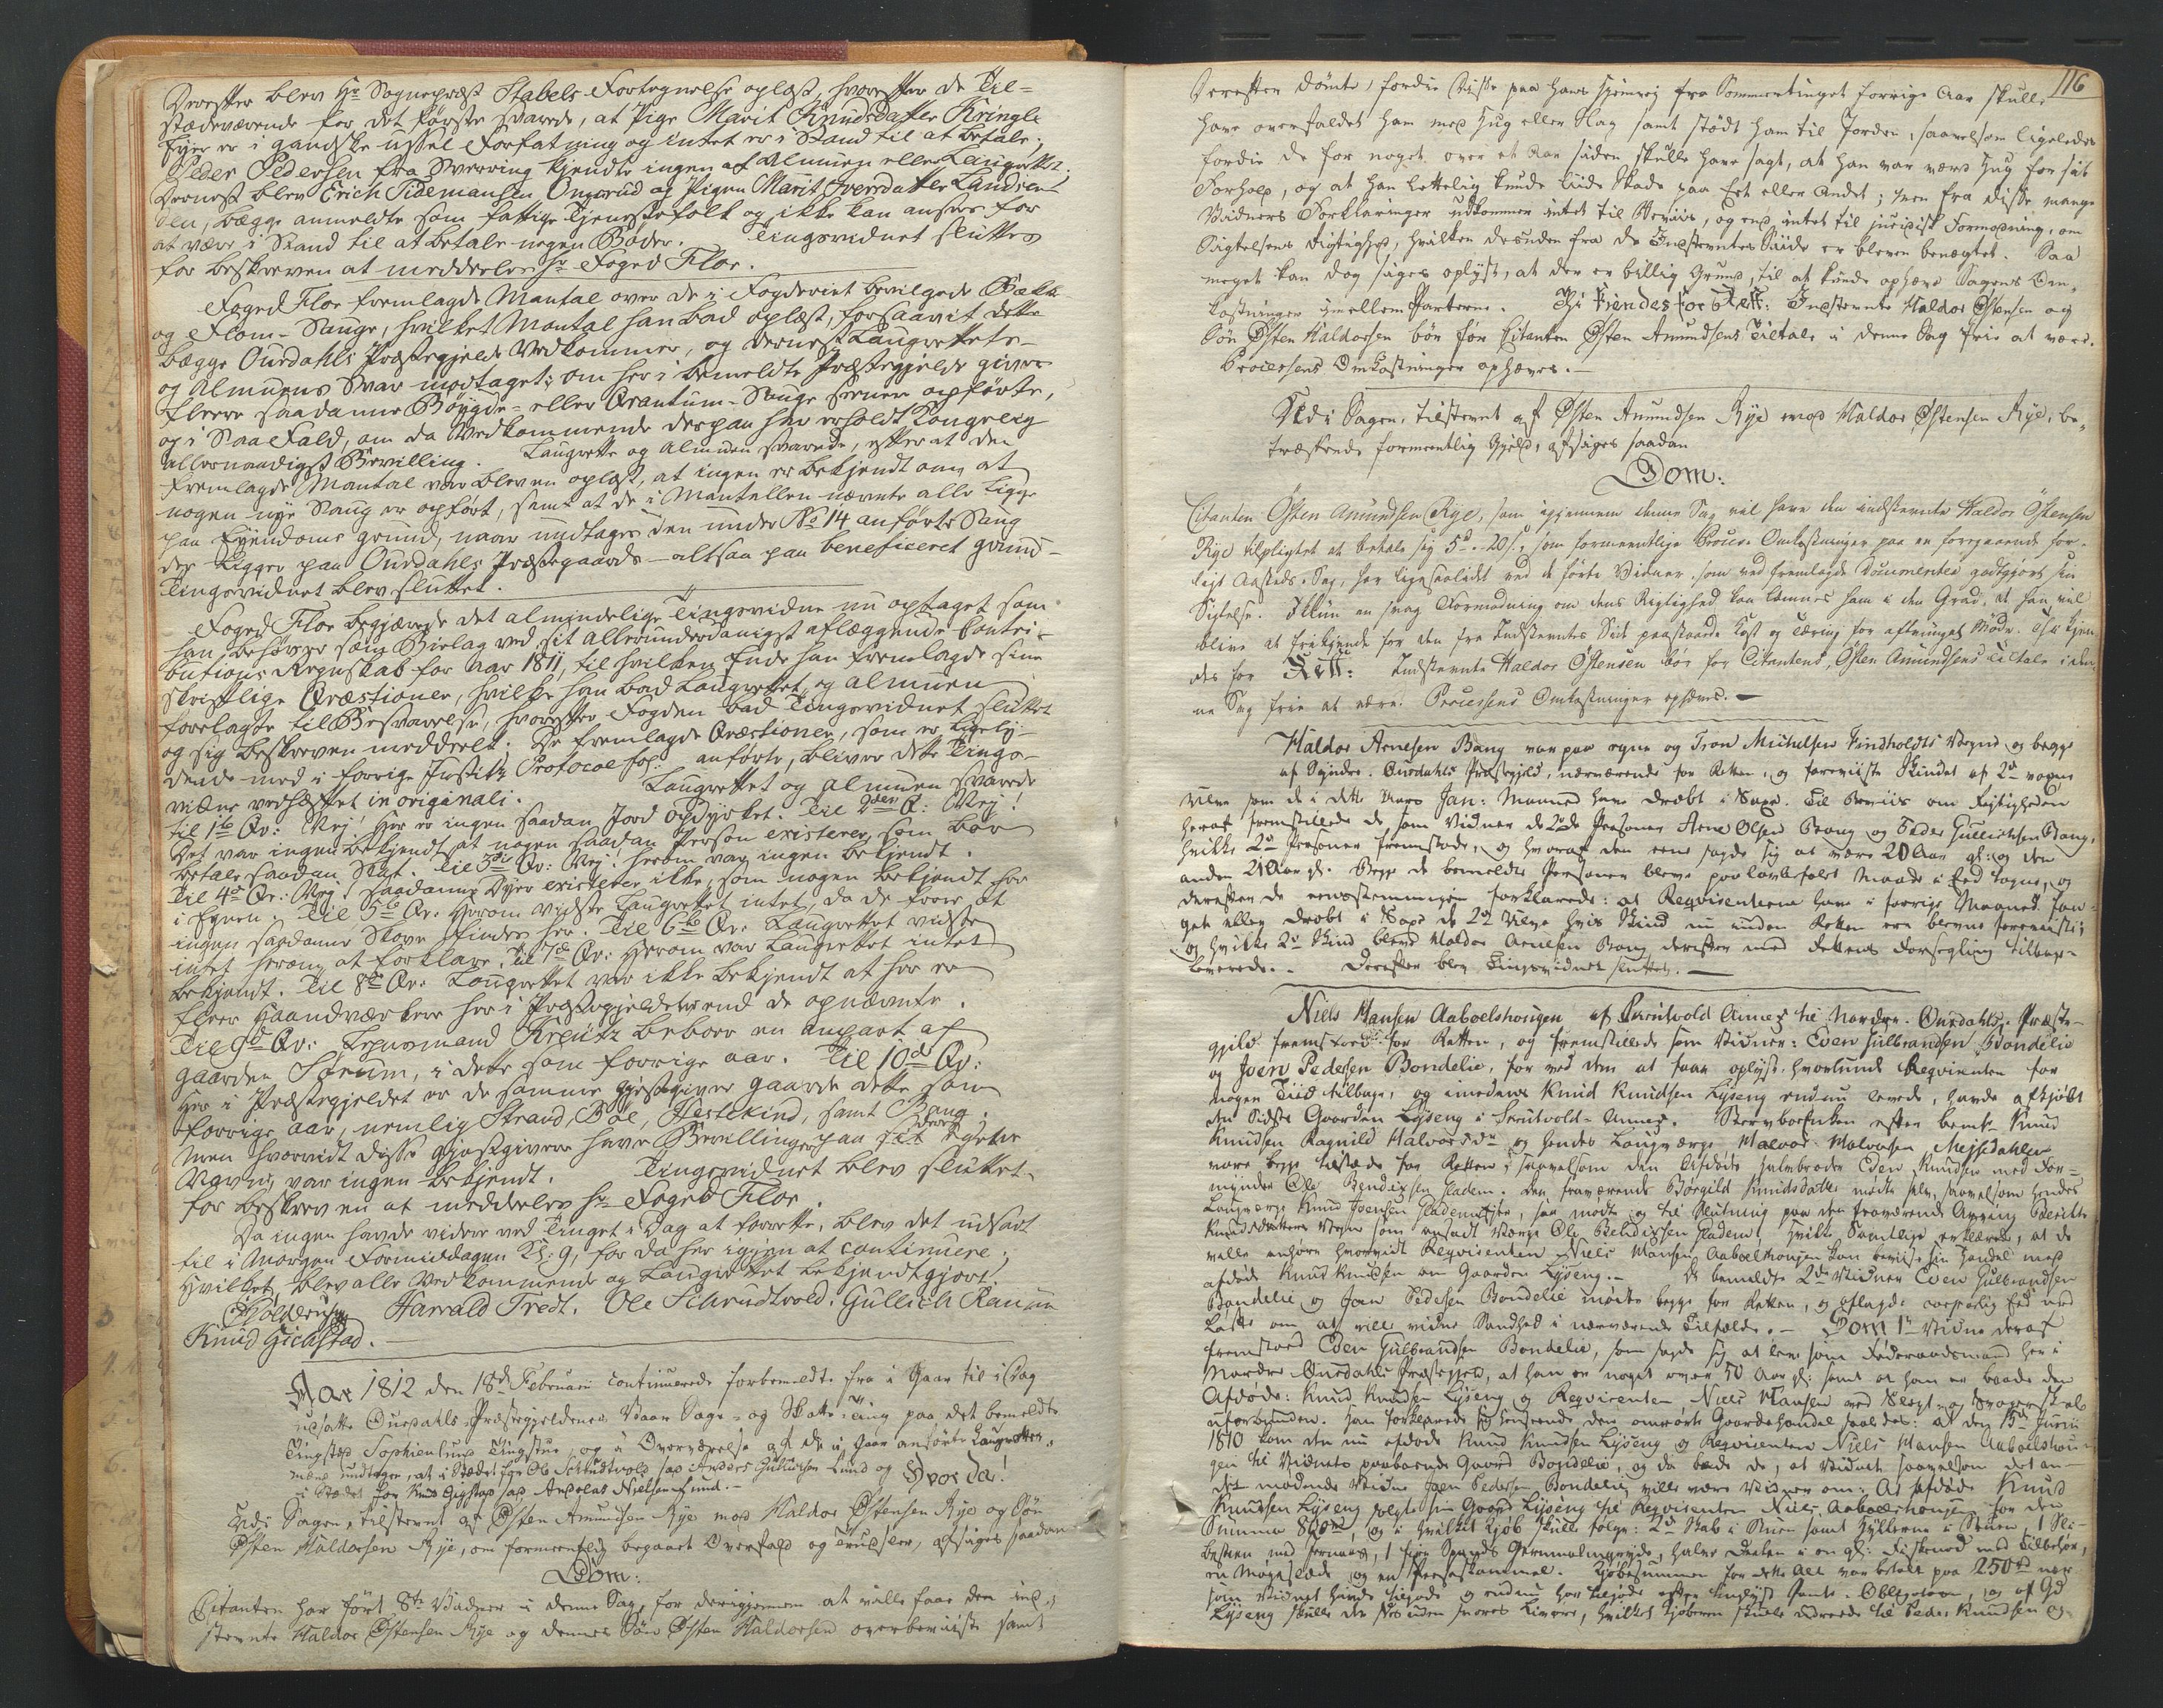 Derefter blev Hr Sognepræst Stabels Fortegnelse oplæst, hvorefter de Til-
stædeværende for det første svarede, at Pige Marit Knudsdatter Kringle
Ejer er i gandske ussel Forfatning og intet er i Stand til at betale;
Peder Pedersen fra Sverrig kjendte ingen af Almuen eller Laugrettet.
Dernæst blev Erich Tidemansen Ongsrud og Pigen Marit Iversdatter Landsen-
den, begge anmeldte som fattige Tjenestefolk og ikke kan ansees for
at være i Stand til at betale nogen Bøder. Tingsvidnet sluttes
for beskreven at meddeles Hr Foged Flor.
Foged Flor fremlagde Mantal over de i Fogderiet bevilgede Bekke
og Flom-Sauge, hvilket Mantal han bad oplæst, forsaavit dette
bægge Ourdahls Præstegjelde Vedkommer, og dernæst Laugrettets
og Almuens Svar modtaget: om her i bemeldte Præstegjelde gives
fleere saadanne Bøygde- eller Qvantum-Sauge senere opførte,
og i Saa Fald, om da Vedkommende derpaa har erholdt Kongelig
allernaadigst Bevilling. Laugrette og Almuen svarede, efter at det
fremlagde Mantal var bleven oplæst, at ingen er bekjendt om, at
nogen nye Saug er opført, samt at de i Mantallen nævnte alle ligge
paa Eyendoms grund, naar undtages den under No 14 anførte Saug
der ligger paa Ourdahls Præstegaards - altsaa paa beneficeret grund -
Tingsvidnet blev sluttet.
Foged Flor begjærede det almindelige Tingsvidne nu optaget som
han behøver som Bielag ved sit allerunderdanigst aflæggende Contri-
butions Regnskab for Aar 1811, til hvilken Ende han fremlagde sine
skriftlige Qvæstioner, hvilke han bad Laugrettet og Almuen
forelagte til Besvarelse, hvorefter Fogden bad Tingsvidnet sluttet
og sig beskreven meddeelt. De fremlagde Qvæstioner, som er ligely-
dende med i forrige Justitz Protocol fol: anførte, bliver dette Tings-
vidne vedhæftet in originali. Laugrettet og Almuen svarede
til 1te Qv: Nej! Her er ingen saadan Jord opdyrket. Til 2den Q: Nej!
Det var ingen bekjendt at nogen saadan Person existerer, som bør
betale saadan Skat. Til 3die Qv: Nej! herom var ingen bekjendt.
Til 4de Qv: Nej! saadanne Dyer existerer ikke, som nogen bekjendt her
i Egnen. Til 5te Qv: Herom vidste Laugrettet intet, da de troer at
ingen saadanne Skove findes her. Til 6te Qv: Laugrettet vidste
intet herom at forklare. Til 7de Qv: Herom var Laugrettet intet
bekjendt. Til 8de Qv: Laugrettet var ikke bekjendt at her er
fleere Haandværkere her i Præstegjeldet end de opnævnte.
Til 9de Qv: Lensmand Kreütz beboer en anpart af
gaarden Sørum, i dette som forrige aar. Til 10de Qv:
Her i Præstegjeldet er de samme Gjæstgiver gaarde dette som
forrige aar, nemlig Strand, Bøe, Hestekind, samt Bang.
Men hvorvidt disse Gjæstgivere have Bevillinger paa deres egne
Navne, var ingen bekjendt. Tingsvidnet blev sluttet
for beskreven at meddeles Hr Foged Flor.
Da ingen havde videre ved Tinget i Dag at forrette, blev det udsat
til i Morgen Formiddagen Kl: 9, for da her igjen at continuere;
Hvilket blev alle Vedkommende og Laugrettet bekjendtgjort!
Harrald Tredt. Ole Schrudtvold. Gullich Ranum
Knud Gichstad.
Aar 1812 den 18de Februari continuerede forbemeldte fra i Gaar til i Dag
udsatte Ourdahls Præstegjeldenes Vaar Sage- og Skatte-Ting paa det bemeldte
Tingsted Sophienlund Tingstue, og i Overværelse af de i Gaar anførte Laugrettes-
mænd undtagen, at i Stædet for Ole Schrudtvold sad Anders Gulliksen Lund og
i Stædet for Knud Gigstad sad Andreas Nielsen Lund. - Hvor Da!
Udi Sagen, tilstevnt af Østen Amundsen Rye mod Haldor Østensen Rye og Søn
Østen Haldorsen Rye, om formeentlig begaaet Overfald og Trudsler, afsiges saadan
Dom:
Citanten har ført 8te Vidner i denne Sag, for derigjennem at ville faae den ind-
stevnte Haldor Østensen Rye og dennes Søn Østen Haldorsen overbeviiste samt
116
derefter dømte, fordi disse paa hans Hjemvej fra Sommertinget forrige Aar skulle
have overfaldet ham med Hug eller Slag samt stødt ham til Jorden, saavelsom ligeledes
fordi de for noget over et Aar siden skulle have sagt, at han var værd Hug for sit
Forhold, og at han lettelig kunde liide Skade paa Eet eller Andet; men fra disse mange
Vidners Forklaringer udkommer intet til Beviis, og end intet til juridisk Formodning, om
Sigtelsens Rigtighed, hvilken desuden fra de Indstevntes Siide er bleven benægtet. Saa
meget kan dog siges oplyst, at der er billig Grund, til at kunde ophæve Sagens Om-
kostninger imellem Parterne. Thi Kiendes for Rett: Indstevnte Haldor Østensen og
Søn Østen Haldorsen bør for Citanten Østen Amundsens Tiltale i denne Sag frie at være.
Processens Omkostninger ophæves. -
Udi Sagen, tilstevnt af Østen Amundsen Rye mod Haldor Østensen Rye, be-
træffende formeentlig Gjeld, afsiges saadan
Dom:
Citanten Østen Amundsen Rye, som igjennem denne Sag vil have den indstevnte Haldor Østensen
Rye tilpligtet at betale sig 5d. 20s., som formeentlige Proces Omkostninger paa en foregaaende for-
ligt Aasteds-Sag, har ligesaalidet ved de førte Vidner som ved fremlagde Documenter godtgjort sin
Sigtelse. Ikkun en svag Formodning om dens Rigtighed kan levnes ham i den Grad, at han vil
blive at frikjende for den fra Indstevntes Side paastaaede Kost og Tæring for aftvunget Møde. Thi kjen-
des for Rett: Indstevnte Haldor Østensen bør for Citantens, Østen Amundsens Tiltale i den-
ne Sag frie at være. Processens Omkostninger ophæves. -
Haldor Arnesen Bang var paa egne og Tron Michelsen Findholdts Vegne og begge
af Søndre-Ourdahls Præstegjeld, nærværende for Retten, og foreviiste Skindet af 2de voxne
Ulve som de i dette Aars Jan: Maaned have dræbt i Saxe. Til Beviis om Rigtigheden
heraf fremstillede de som Vidner de 2de Personer Arne Olsen Bang og Peder Gullichsen Bang,
hvilke 2de Personer fremstode, og hvoraf den eene sagde sig at være 20 Aar gl: og den
anden 21 Aar gl. Begge de bemeldte Personer bleve paa lovbefalet Maade i Eed tagne, og
derefter de eenstemmigen forklarede: at Reqvirenterne have i forrige Maaned fan-
get eller dræbt i Saxe de 2de Ulve hvis Skind nu inden Retten ere blevne foreviiste;
og hvilke 2de Skind bleve Haldor Arnesen Bang derefter med Rettens Forsegling tilbage-
leverede. - Derefter blev Tingsvidnet sluttet. -
Niels Hansen Aaboelshougen af Skrutvold Annex til Nordre-Ourdahls Præste-
gjeld fremstoed for Retten, og fremstillede som Vidner: Even Gulbrandsen Bondelie
og Joen Pedersen Bondelie, for ved dem at faae oplyst, hvorlunde Reqvirenten for
nogen Tiid tilbage, og imedens Knud Knudsen Lyseng endnu levede, havde afkjøbt
den Sidste Gaarden Lyseng i Skrutvold-Annex. Stervboe Enken efter bemte Knud
Knudsen Ragnild Halvorsdr og hendes Laugværge Halvor Halvorsen Mejsdahlen
vare begge tilstæde for Retten, saavelsom den Afdødes halvbroder Even Knudsen med For-
mynder Ole Bendixsen Fladem. Den fraværende Børgild Knudsdatter mødte selv, saavelsom hendes
Laugværge Knud Joensen, saa mødte og til Slutning paa den fraværende Arving Berithe
Knudsdatters Vegne som ansadt Værge Ole Bendixsen Fladem, hvilke Samtlige erklærede, at de
ville anhøre hvorvidt Reqvirenten Niels Hansen Aaboelshougen kan beviise sin Handel med
afdøde Knud Knudsen om Gaarden Lyseng. - De bemeldte 2de Vidner Even Gulbrandsen
Bondelie og Joen Pedersen Bondelie mødte begge for Retten, og aflagde corporlig Eed med
Løfte om at ville vidne Sandhed i nærværende Tilfælde. - Som 1te Vidne deraf
fremstoed Even Gulbrandsen Bondelie, som sagde sig at leve som Føderaadsmand her i
Nordre Ourdahls Præstegjeld, at han er noget over 50 Aar gl: samt at han er baade den
Afdøde: Knud Knudsen Lyseng og Reqvirenten, Niels Hansen med Slegt- og Svogerskab
uforbunden. Han forklarede sig henseende den omrørte Gaardehandel saaledes: at den 15de Junii
1810 kom den nu afdøde Knud Knudsen Lyseng og Reqvirenten Niels Hansen Aaboelshou-
gen til Vidnets paaboende Gaard Bondelie, og da bade de, at Vidnet saavelsom det an-
det mødende Vidne Joen Pedersen Bondelie ville være Vidner om: At afdøde Knud
Knudsen Lyseng solgte sin Gaard Lyseng til Reqvirenten Niels Aaboelshougen for den
Summa 800rd, og i hvilket Kjøb skulle følge: 2de Skab i Stuen samt Hyllerne i Stuen, 1 Sli-
besteen med Jernvev, 1 fire Spands Jernmalmgryde, halve Deelen i en gl: med Tilbehør,
en Møgslæde og en Persestammel. Kjøbesummen for dette Alt var betalt paa 250rd nær
som Vidnet havde tilgode og endnu har tilgode efter tinglyst Pante-Obligation, og af Gd
Lyseng skulle der svares Livøre, hvilket Kjøberen skulle udreede til Peder Knudsen og